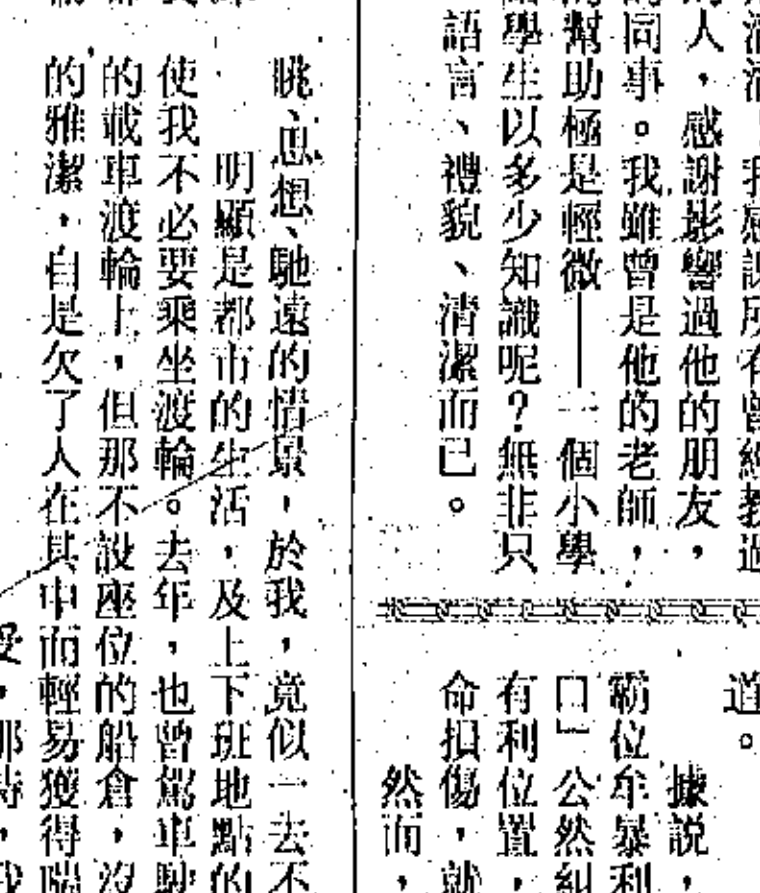 清潔！我感謝所有曾經教過
的人，感謝影響過他的朋友，
的同事。我雖曾是他的老師，
幫助極是輕微——一個小學
學生以多少知識呢？無非只
語言、禮貌、清潔而已。
道。
據說，
霸位牟暴利
口」公然糾
有利位置，
命扣傷，就
然而，
眺、思想、馳遠的情景，於我，竟似一去不
明顯是都市的生活，及上下班地點的
使我不必要乘坐渡輪。去年，也曾駕車駛
的載車渡輪上，但那不設座位的船倉，沒
的雅潔，自是欠了人在其中而輕易獲得喘
受，那時，我